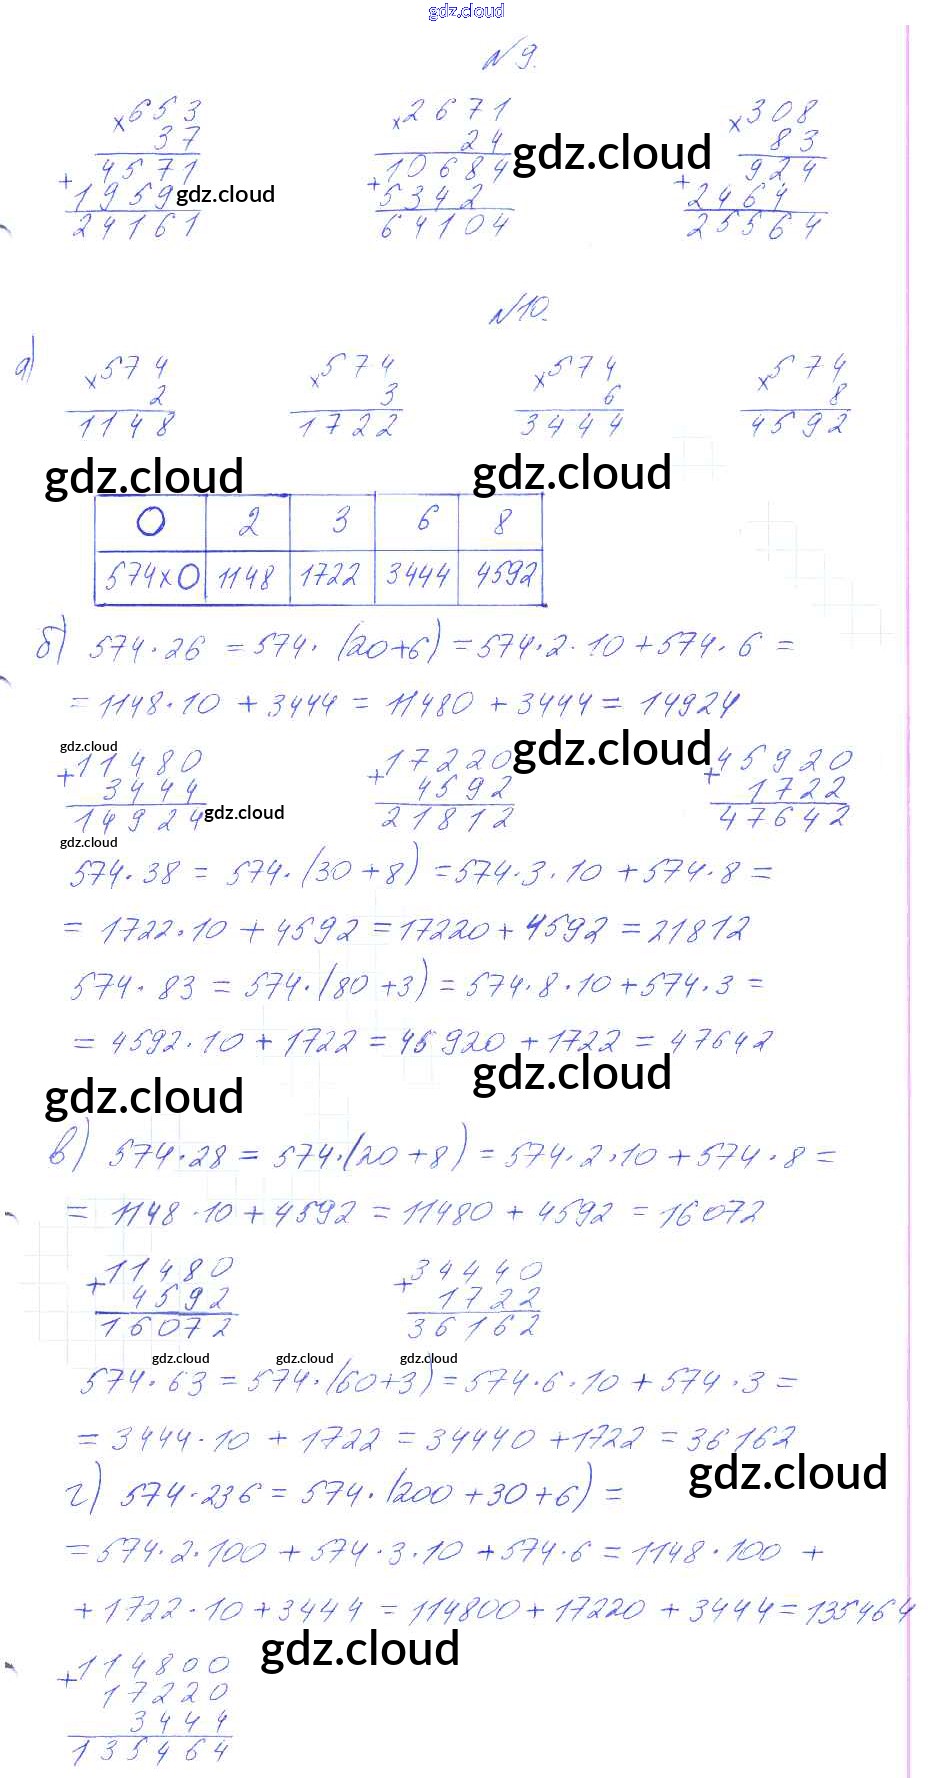 gdz.cloud
№9.
×653 ×2671 ×308
37 24 83
4571 10684 924
+ + +
1959 5342 2464
24161 64104 25564
gdz.cloud
gdz.cloud
№10.
а) ×574 ×574 ×574 ×574
2 3 6 8
1148 1722 3444 4592
gdz.cloud gdz.cloud
О 2 3 6 8
574×О 1148 1722 3444 4592
б) 574·26 = 574·(20+6) = 574·2·10+574·6 =
= 1148·10 + 3444 = 11480 + 3444 = 14924
gdz.cloud gdz.cloud
+11480 +17220 +45920
3444 4592 1722
14924 21812 47642
gdz.cloud
gdz.cloud
574·38 = 574·(30+8) = 574·3·10 + 574·8 =
= 1722·10 + 4592 = 17220 + 4592 = 21812
574·83 = 574·(80+3) = 574·8·10+574·3 =
= 4592·10 + 1722 = 45920 + 1722 = 47642
gdz.cloud gdz.cloud
в) 574·28 = 574·(20+8) = 574·2·10 + 574·8 =
= 1148·10 + 4592 = 11480 + 4592 = 16072
+11480 +34440
4592 1722
16072 36162
gdz.cloud gdz.cloud gdz.cloud
574·63 = 574·(60+3) = 574·6·10 + 574·3 =
= 3444·10 + 1722 = 34440 + 1722 = 36162
gdz.cloud
г) 574·236 = 574·(200+30+6) =
= 574·2·100 + 574·3·10 + 574·6 = 1148·100 +
+ 1722·10 + 3444 = 114800 + 17220 + 3444 = 135464
gdz.cloud
+114800
17220
3444
135464